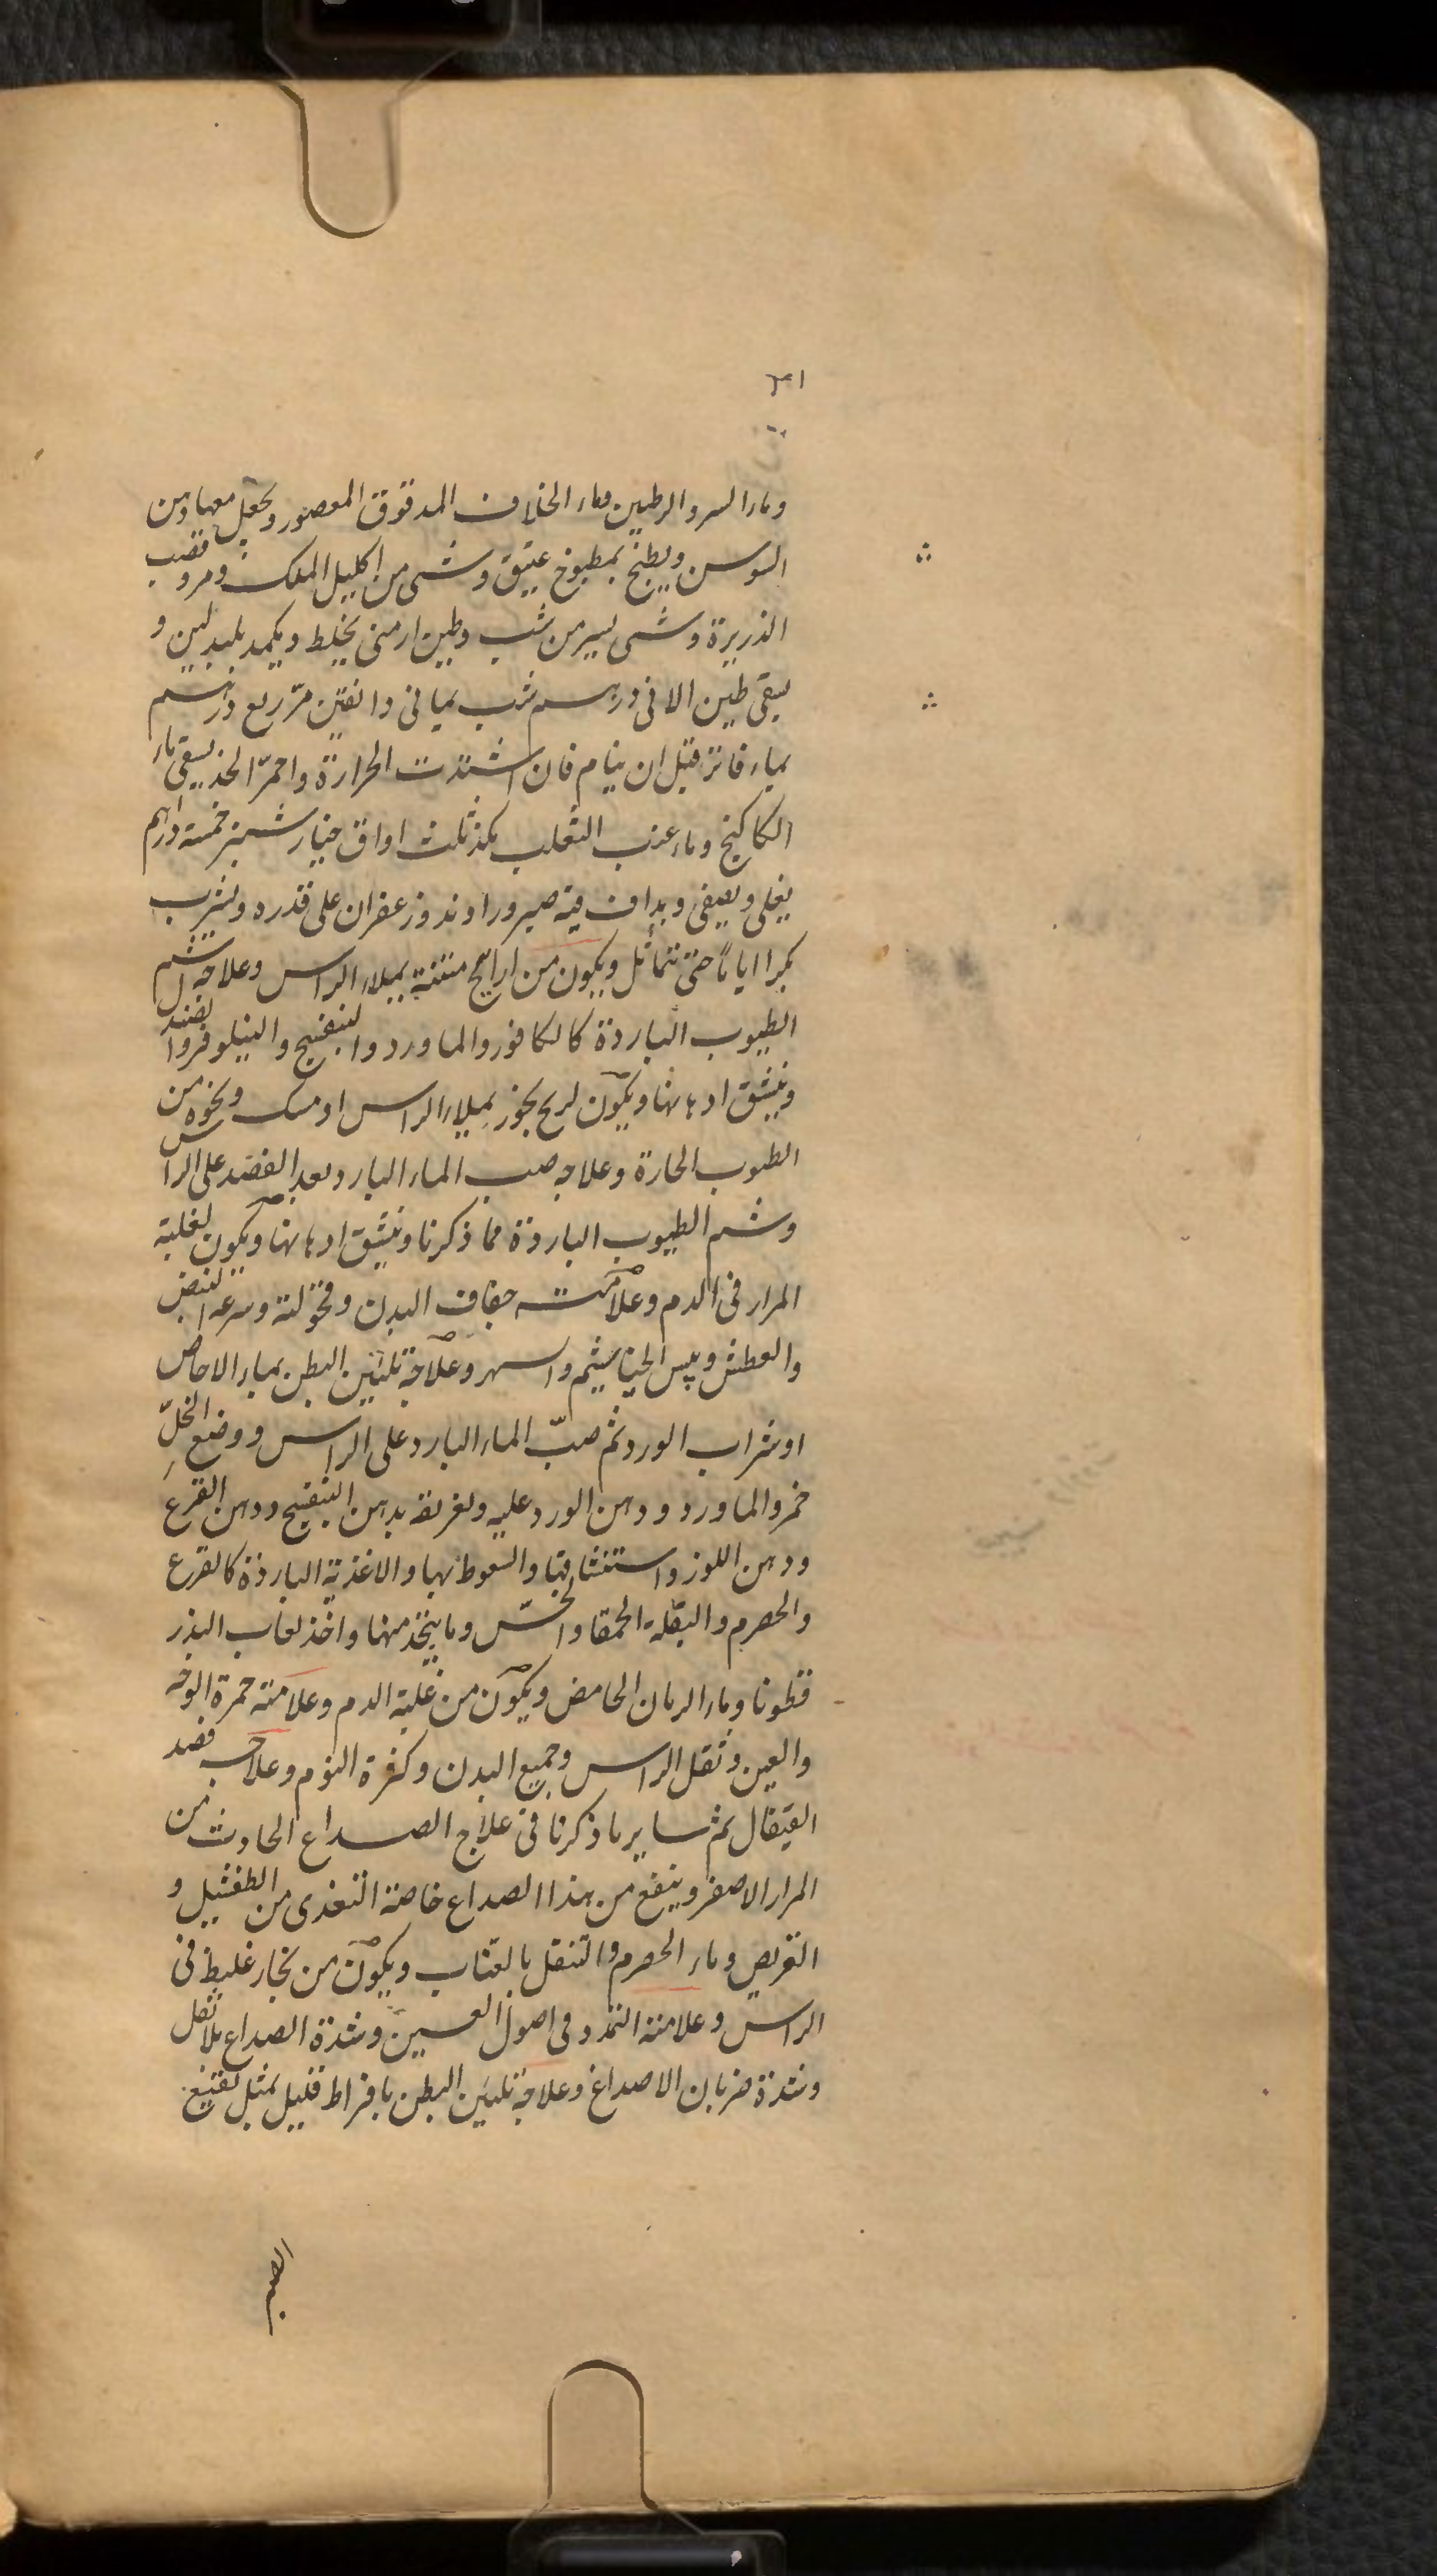 ٣١
وماء السرو الرطبين وماء الخلاف المدقوق المعصور ويجعل معها دهن
السوسن ويطبخ بمطبوخ عتيق وشى من اكليل الملك ومر وقصب
الذريرة وشى يسير من شب وطين ارمنى يخلط ويكمد بلبد لين و
يسقى طين الافى درهم شب يمانى دانقين مرّ ربع درهم
بماء فاتر قبل ان ينام فان اشتدت الحرارة واحمرّ الخد يسقى ماء
الكاكنج وماء عنب الثعلب ثلث اواق خيار شنبر خمسة دراهم
يغلى ويصفى ويداف فيه صبر وراوند وزعفران على قدره ويشرب
اياماً حتى تتماثل ويكون من اراييح منتنة يملاء الراس وعلاجه شم
الطيوب الباردة كالكافور والماورد والبنفسج والنيلوفر والصندل
وينشق ادهانها ويكون لريح بخور يملاء الراس او مسك ونحوه من
الطيوب الحارة وعلاجه صب الماء البارد بعد الفصد على الراس
وشم الطيوب الباردة مما ذكرنا وينشق ادهانها ويكون لغلبة
المرار فى الدم وعلامته جفاف البدن وقحولته وسرعة النبض
والعطش ويبس الخياشيم والسهر وعلاجه تليين البطن بماء الاجاص
او شراب الورد ثم صبّ الماء البارد على الراس ووضع الخلّ
خمر والماورد ودهن الورد عليه وتغريقه بدهن البنفسج ودهن القرع
ودهن اللوز واستنشاقها والسعوط بها والاغذية الباردة كالقرع
والحصرم والبقلة الحمقا والخسّ وما يتخذ منها واخذ لعاب البزر
قطونا وماء الرمان الحامض ويكون من غلبة الدم وعلامته حمرة الوجه
والعين وثقل الراس وجميع البدن وكثرة النوم وعلاجه فصد
القيفال ثم ساير ما ذكرنا فى علاج الصداع الحادث من
المرار الاصفر وينفع من هذا الصداع خاصة التغدى من الطفشيل و
القريص وماء الحصرم والتنقل بالعناب ويكون من بخار غليظ فى
الراس وعلامته التمدد فى اصول العينين وشدة الصداع بلا ثقل
وشدة ضربان الاصداغ وعلاجه تليين البطن بافراط قليل بمثل نقيع
الصبر